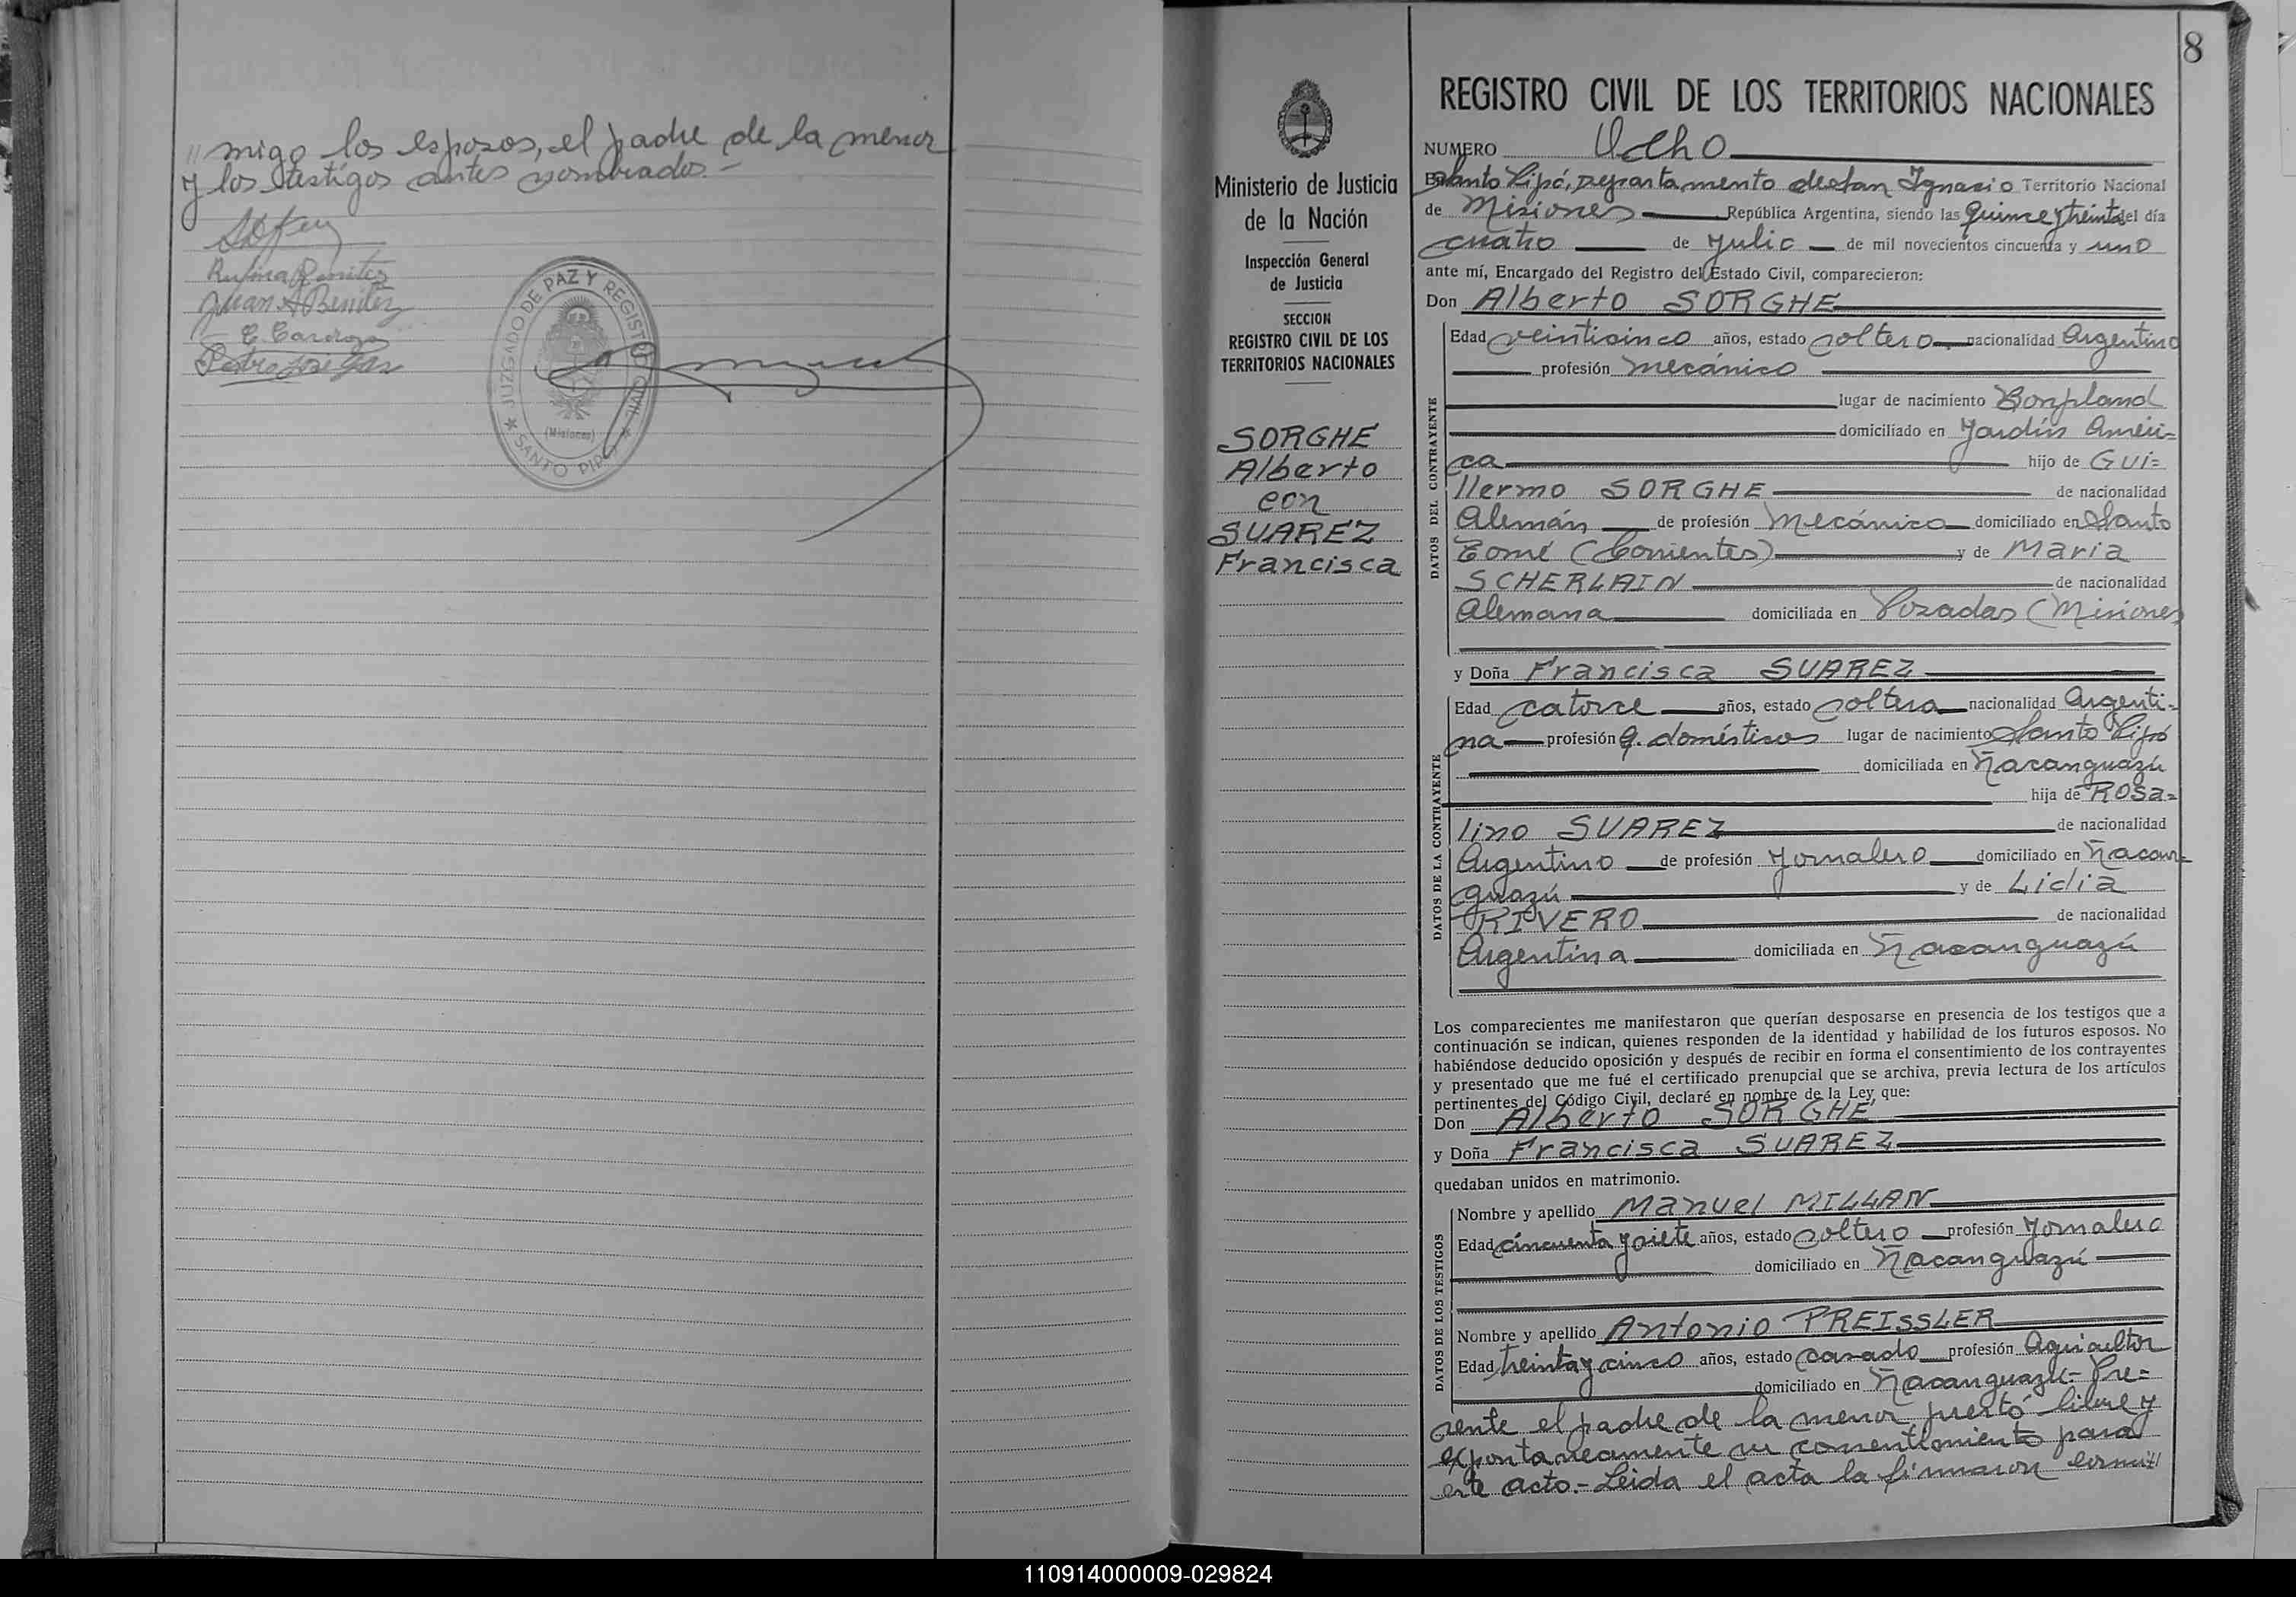 " migo los esposos, el padre de la menor
y los testigos antes nombrados.-
Rufina Benitez
Juan A Benitez
C. Cardozo
Pedro José
JUZGADO DE PAZ Y REGISTRO CIVIL
(Misiones)
★ SANTO PIPO ★
8
Ministerio de Justicia
de la Nación
Inspección General
de Justicia
SECCION
REGISTRO CIVIL DE LOS
TERRITORIOS NACIONALES
SORGHE
Alberto
con
SUAREZ
Francisca
REGISTRO CIVIL DE LOS TERRITORIOS NACIONALES
NUMERO Ocho
En Santo Pipó, Departamento de San Ignacio Territorio Nacional
de Misiones República Argentina, siendo las Quince y treinta del día
cuatro de Julio de mil novecientos cincuenta y uno
ante mí, Encargado del Registro del Estado Civil, comparecieron:
Don Alberto SORGHE
DATOS DEL CONTRAYENTE
Edad veinticinco años, estado soltero nacionalidad Argentino
profesión mecánico
lugar de nacimiento Bonpland
domiciliado en Jardín Améri=
ca hijo de Gui=
llermo SORGHE de nacionalidad
Alemán de profesión Mecánico domiciliado en Santo
Tomé (Corrientes) y de Maria
SCHERLAIN de nacionalidad
Alemana domiciliada en Posadas (Misiones
y Doña Francisca SUAREZ
DATOS DE LA CONTRAYENTE
Edad catorce años, estado soltera nacionalidad Argenti-
na profesión q. domésticos lugar de nacimiento Santo Pipó
domiciliada en Ñacanguazú
hija de Rosa=
lino SUAREZ de nacionalidad
Argentino de profesión Jornalero domiciliado en Ñacan-
guazú y de Lidia
RIVERO de nacionalidad
Argentina domiciliada en Ñacanguazú
Los comparecientes me manifestaron que querían desposarse en presencia de los testigos que a
continuación se indican, quienes responden de la identidad y habilidad de los futuros esposos. No
habiéndose deducido oposición y después de recibir en forma el consentimiento de los contrayentes
y presentado que me fué el certificado prenupcial que se archiva, previa lectura de los artículos
pertinentes del Código Civil, declaré en nombre de la Ley que:
Don Alberto SORGHE
y Doña Francisca SUAREZ
quedaban unidos en matrimonio.
DATOS DE LOS TESTIGOS
Nombre y apellido Manuel MILLAN
Edad cincuenta y siete años, estado soltero profesión Jornalero
domiciliado en Ñacanguazú
Nombre y apellido Antonio PREISSLER
Edad treinta y cinco años, estado casado profesión Agricultor
domiciliado en Ñacanguazú- Pre=
sente el padre de la menor prestó libre y
expontaneamente su consentimiento para
este acto.- Leida el acta la firmaron con
110914000009-029824